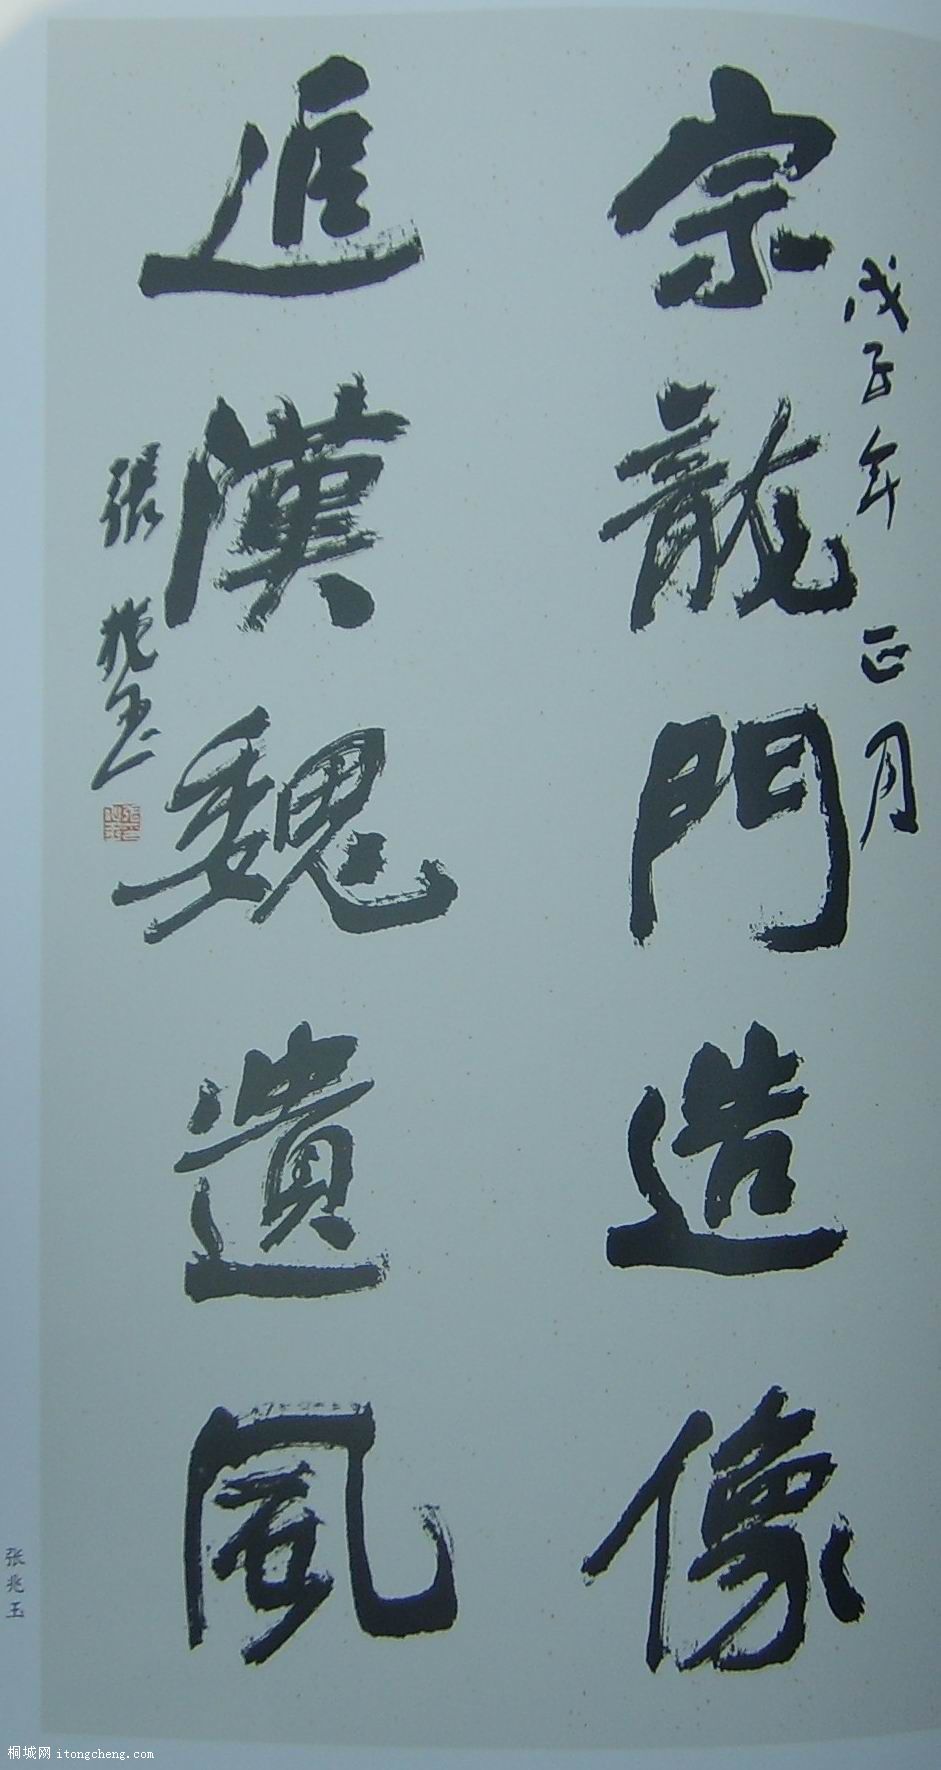 戊子年正月
宗龍門造像
追漢魏遺風
張兆玉
张兆玉
桐城网 itongcheng.com